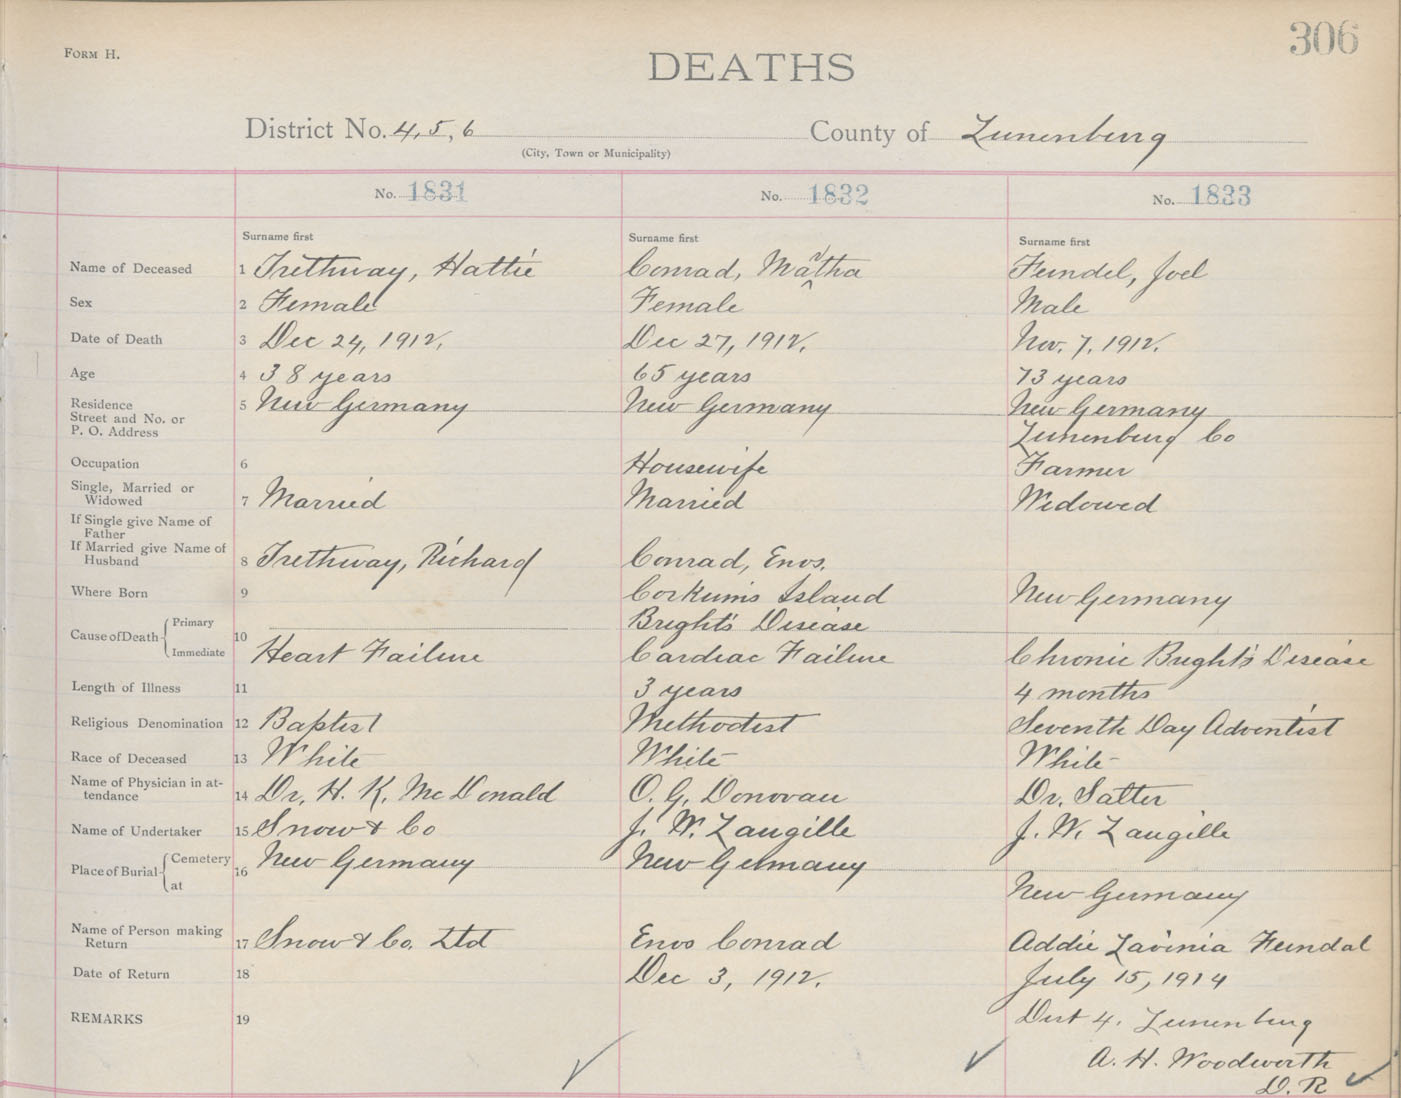 306
FORM H.
DEATHS
District No. 4, 5, 6 County of Lunenburg
(City, Town or Municipality)
No. 1831 No. 1832 No. 1833
Surname first Surname first Surname first
Name of Deceased 1 Trethway, Hattie Conrad, Martha Feindel, Joel
Sex 2 Female Female Male
Date of Death 3 Dec 24, 1912. Dec 27, 1912. Nov. 7, 1912.
Age 4 38 years 65 years 73 years
Residence 5 New Germany New Germany New Germany
Street and No. or
P. O. Address Lunenburg Co
Occupation 6 Housewife Farmer
Single, Married or
Widowed 7 Married Married Widowed
If Single give Name of
Father
If Married give Name of
Husband 8 Trethway, Richard Conrad, Enos.
Where Born 9 Corkum's Island New Germany
Cause of Death Primary 10 Bright's Disease
Immediate Heart Failure Cardiac Failure Chronic Bright's Disease
Length of Illness 11 3 years 4 months
Religious Denomination 12 Baptist Methodist Seventh Day Adventist
Race of Deceased 13 White White White
Name of Physician in at-
tendance 14 Dr. H. K. McDonald O. G. Donovan Dr. Salter
Name of Undertaker 15 Snow & Co J. W. Zaugille J. W. Zaugille
Place of Burial Cemetery 16 New Germany New Germany
at New Germany
Name of Person making
Return 17 Snow & Co. Ltd Enos Conrad Addie Lavinia Feindal
Date of Return 18 Dec 3, 1912. July 15, 1914
REMARKS 19 Dist 4. Lunenburg
A. H. Woodworth
D. R